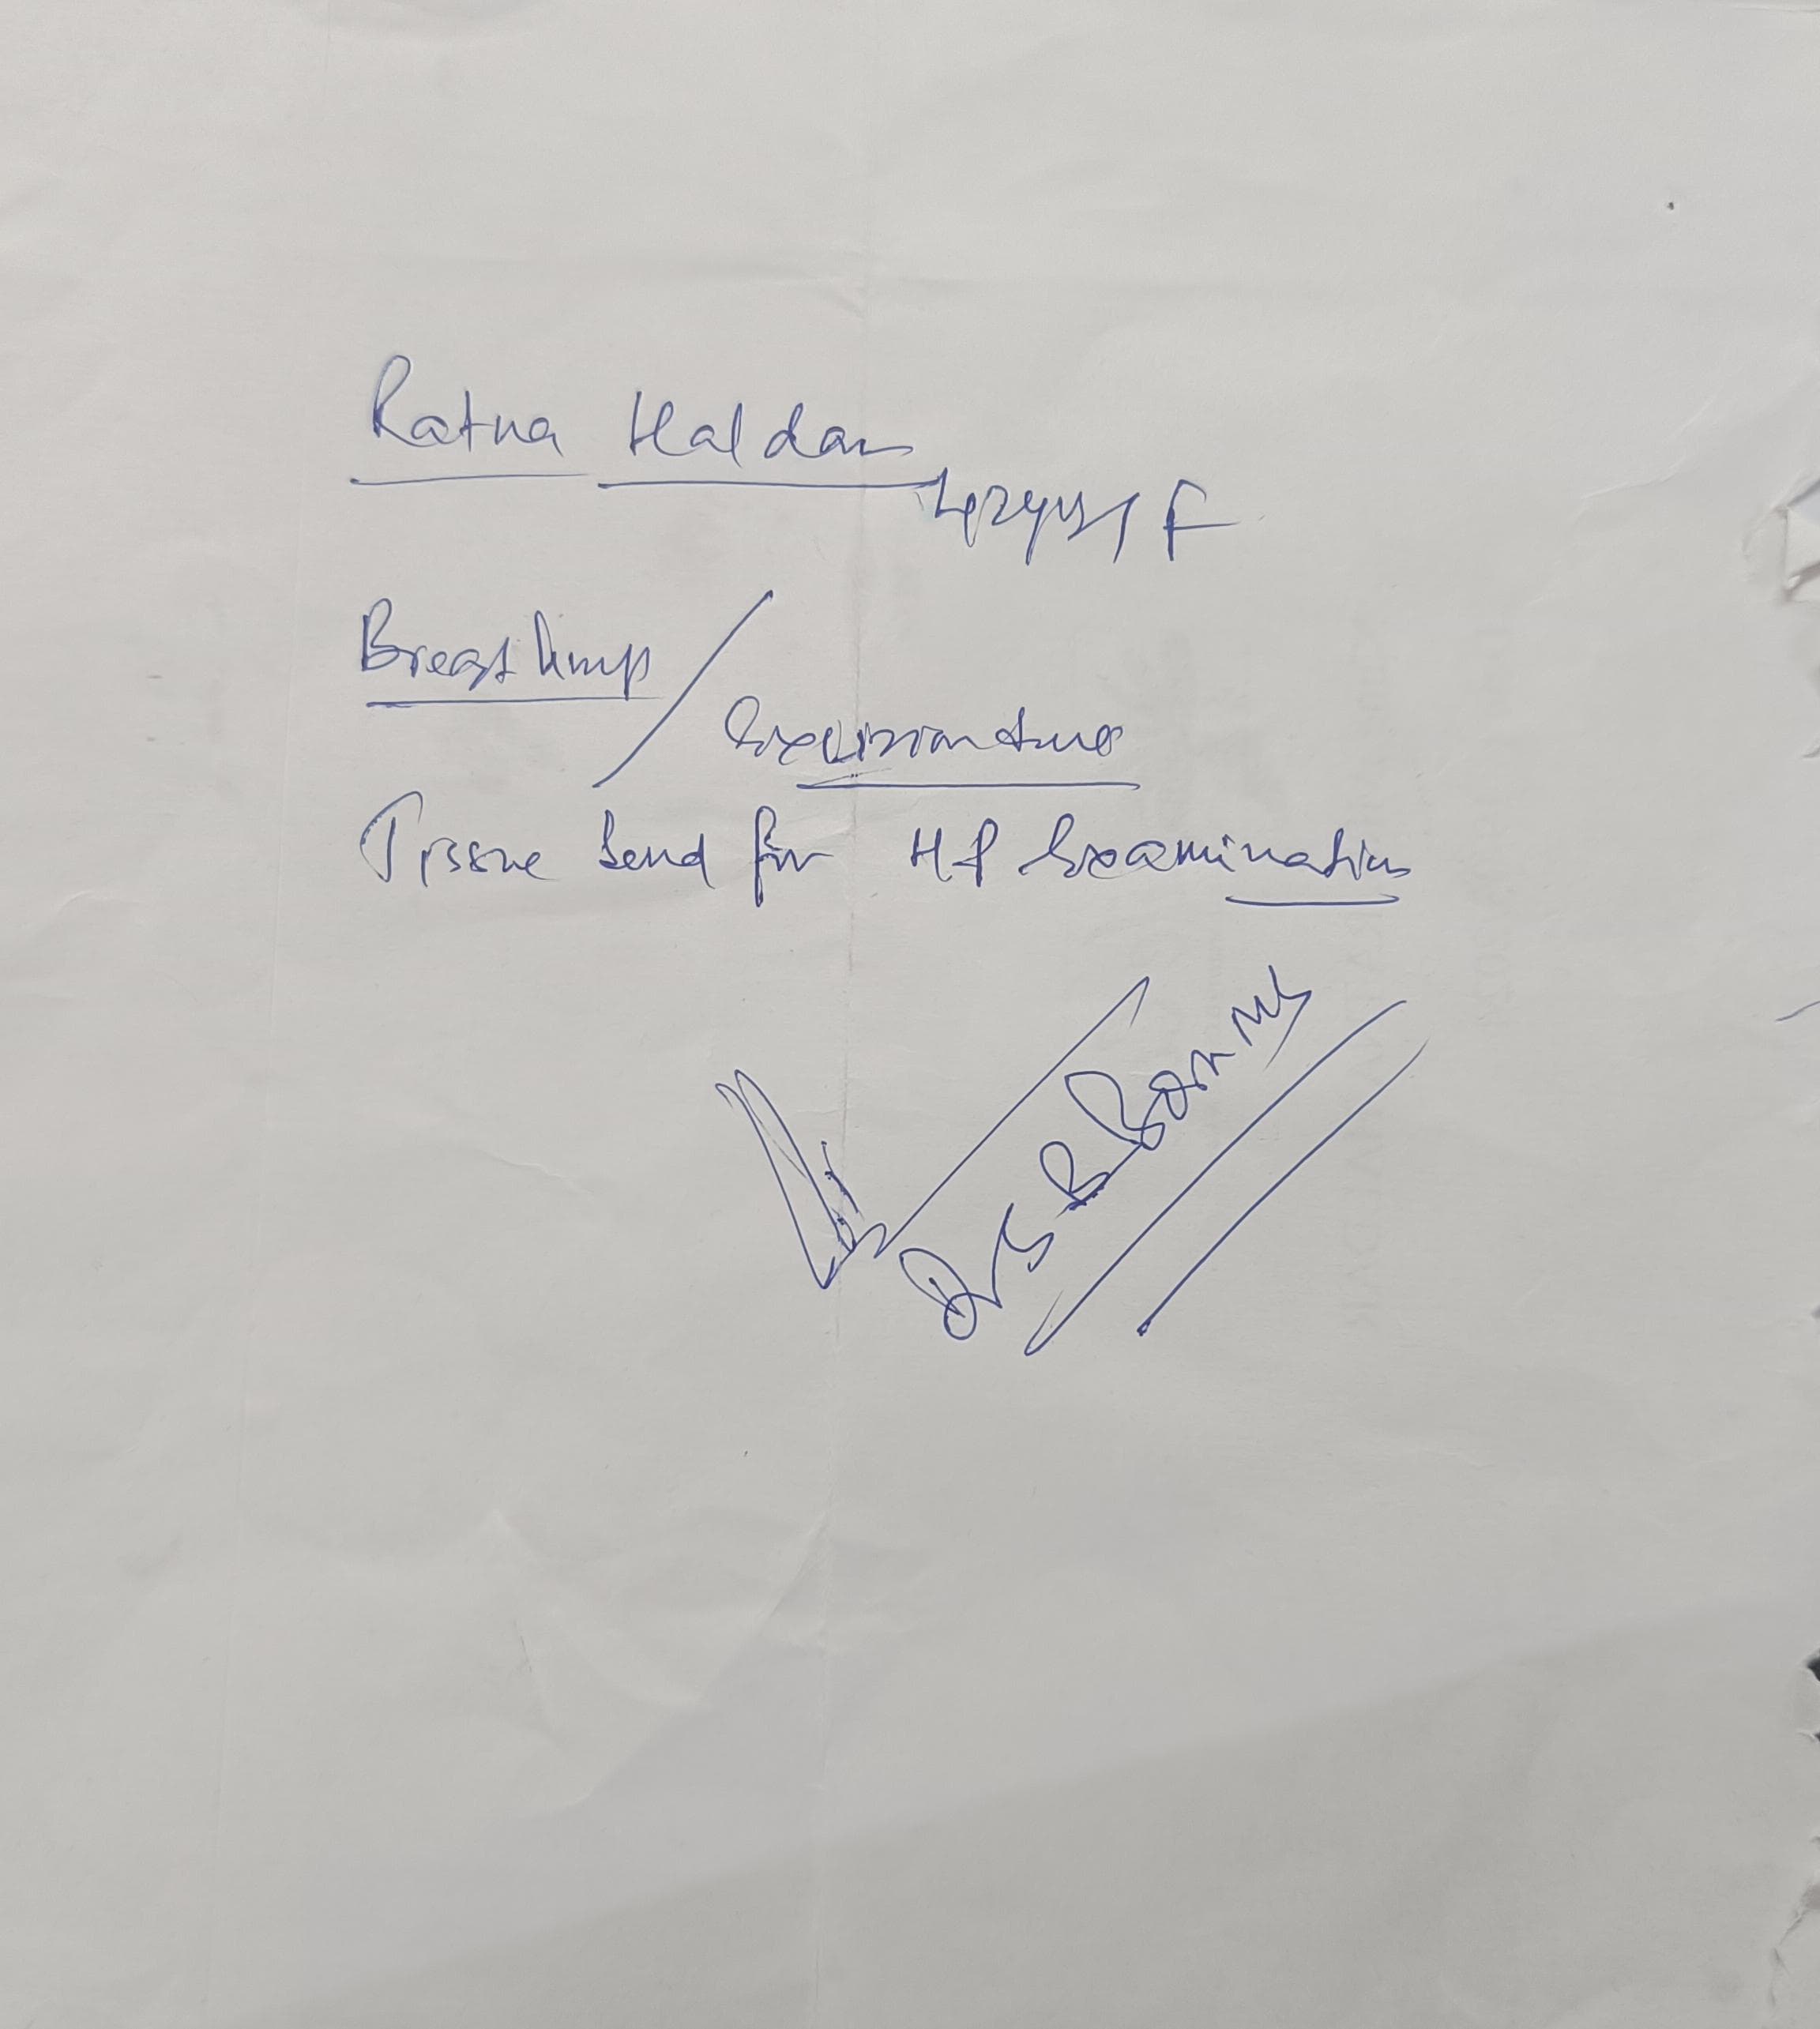 Ratna Haldar
42yrs/F
Breast lump /
Excision done
Tissue send for HP Examination
Dr S B